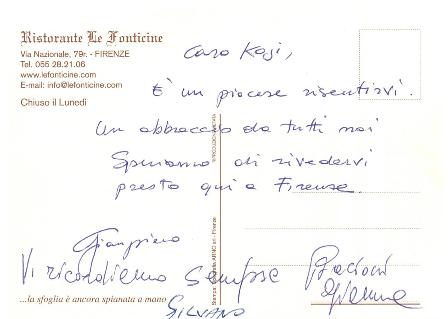 Ristorante Le Fonticine
Via Nazionale, 79r. - FIRENZE
Tel. 055 28.21.06
www.lefonticine.com
E-mail: info@lefonticine.com
Chiuso il Lunedì
Caro Koji,
È un piacere risentirvi.
Un abbraccio da tutti noi
Speriamo di rivedervi
presto qui a Firenze.
Gianpiero
Vi ricordiamo sempre
Bacioni
Gianna
SILVANO
...la sfoglia è ancora spianata a mano